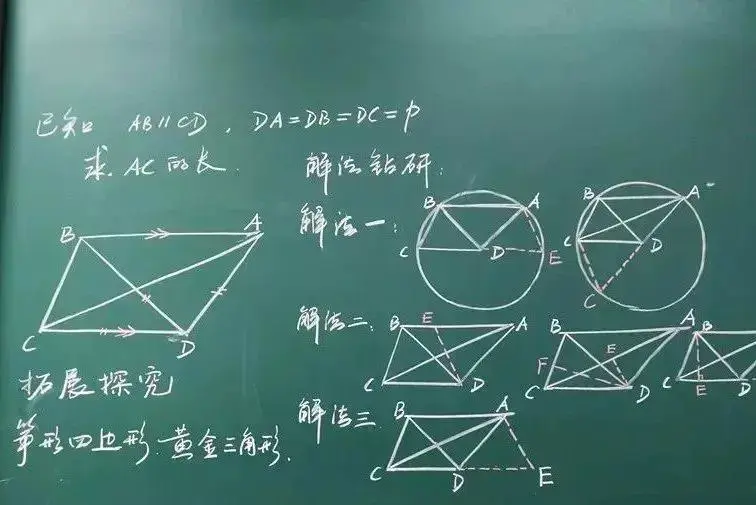 已知 AB∥CD，DA=DB=DC=p
求 AC的长.
解法钻研：
解法一：
B A C D E
B A C D C
B A C D
解法二：
B E A C D
B A E F C D
B C E D
拓展探究
筝形四边形.黄金三角形.
解法三.
B A C D E